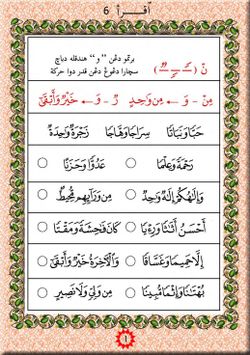 اقرأ 6
برتمو دڠن " و " هندقله دباچ
سچارا دڠوڠ دڠن قدر دوا حركة
نْ ( ــًــٍــٌ )
مِنْ - وَ ← مِن وَاحِدٍ رٌ - وَ ← خَيْرٌ وَأَبْقَىٰ
حَبًّا وَنَبَاتًا سِرَاجًا وَهَّاجًا زَجْرَةٌ وَاحِدَةٌ
رَحْمَةً وَعِلْمًا عَدُوًّا وَحَزَنًا
وَإِلَٰهُكُمْ إِلَٰهٌ وَاحِدٌ مِن وَرَائِهِم مُّحِيطٌ
أَحْسَنُ أَثَاثًا وَرِءْيًا كَانَ فَاحِشَةً وَمَقْتًا
إِلَّا حَمِيمًا وَغَسَّاقًا وَالْآخِرَةُ خَيْرٌ وَأَبْقَىٰ
بُهْتَانًا وَإِثْمًا مُّبِينًا مِن وَلِيٍّ وَلَا نَصِيرٍ
١